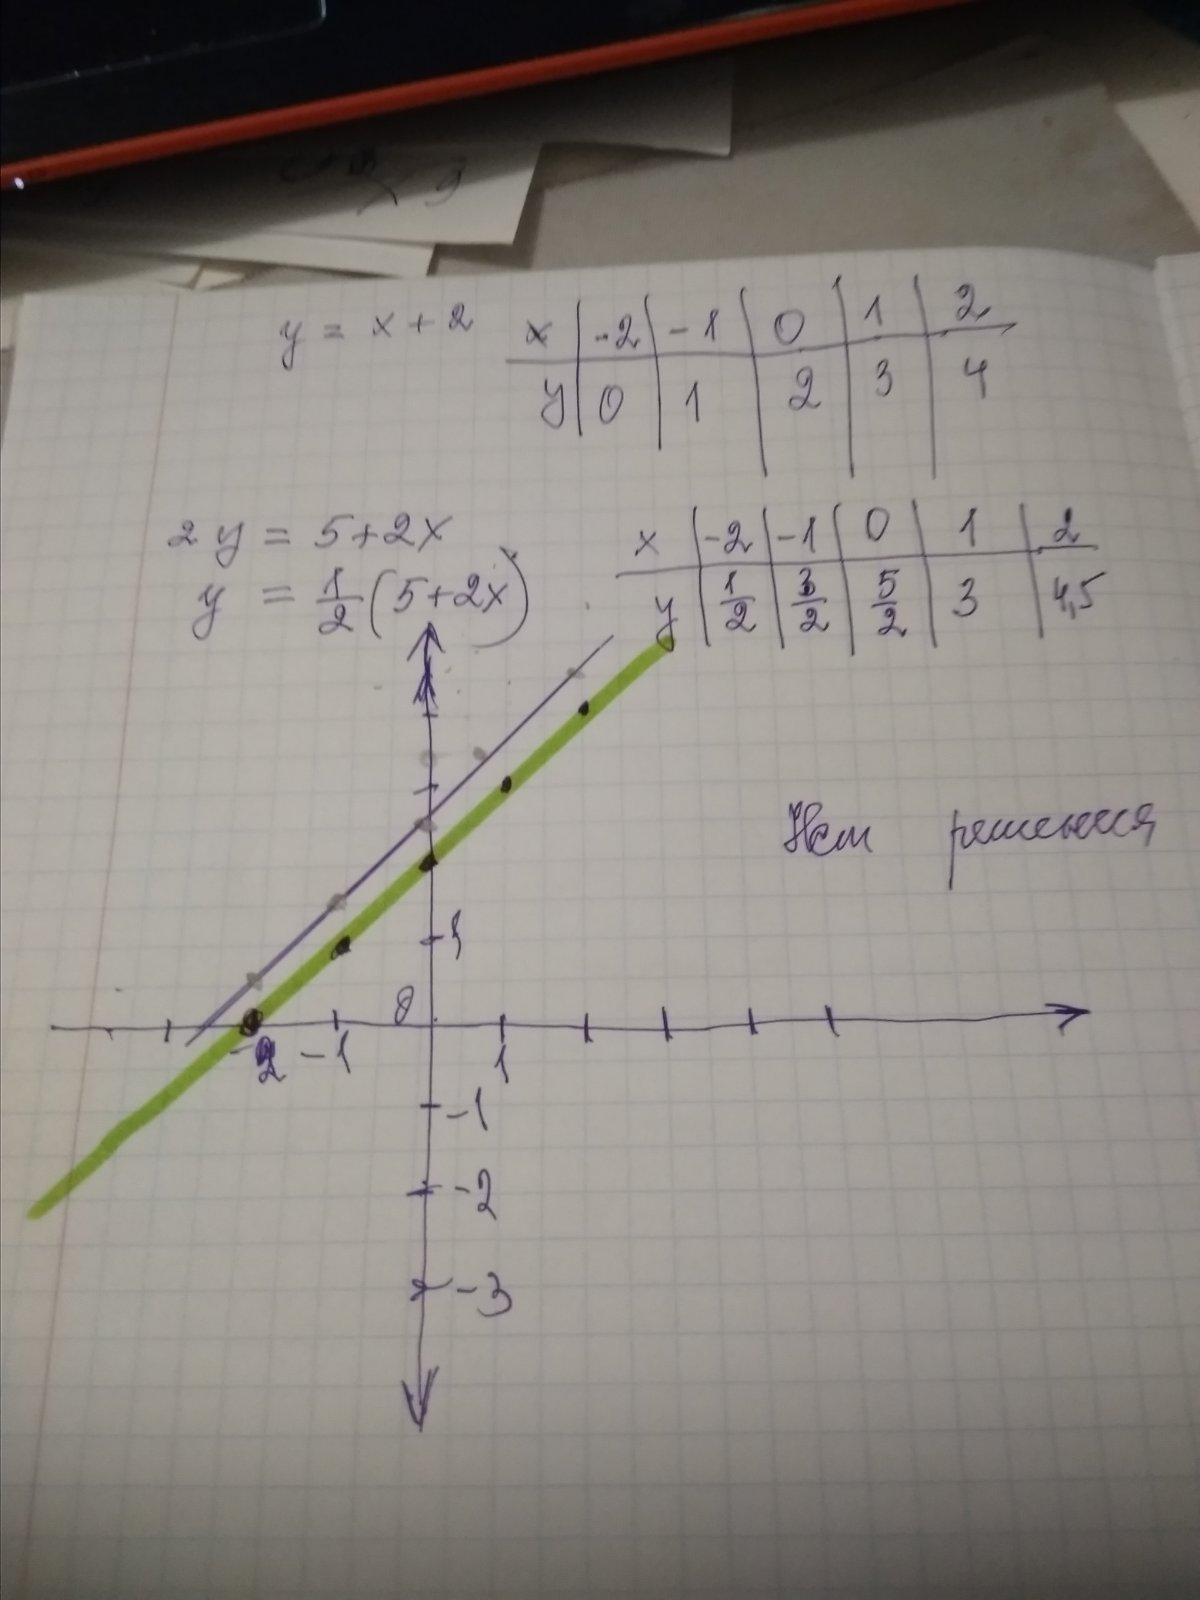 y = x + 2
x | -2 | -1 | 0 | 1 | 2
y | 0 | 1 | 2 | 3 | 4
2y = 5+2x
y = 1/2 (5+2x)
x | -2 | -1 | 0 | 1 | 2
y | 1/2 | 3/2 | 5/2 | 3 | 4,5
Нет решения
1
0
-2 -1 1
-1
-2
-3